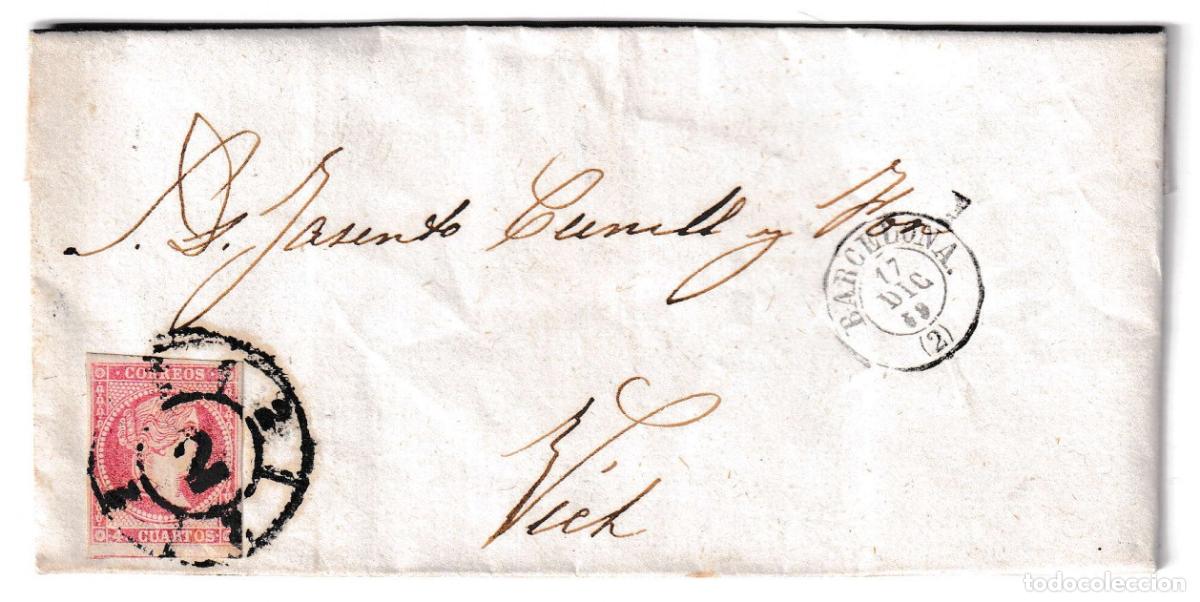 S. D. Jasento Cunill y Hno
BARCELONA.
17
DIC
59
(2)
CORREOS
2
4 CUARTOS
Vich
todocoleccion